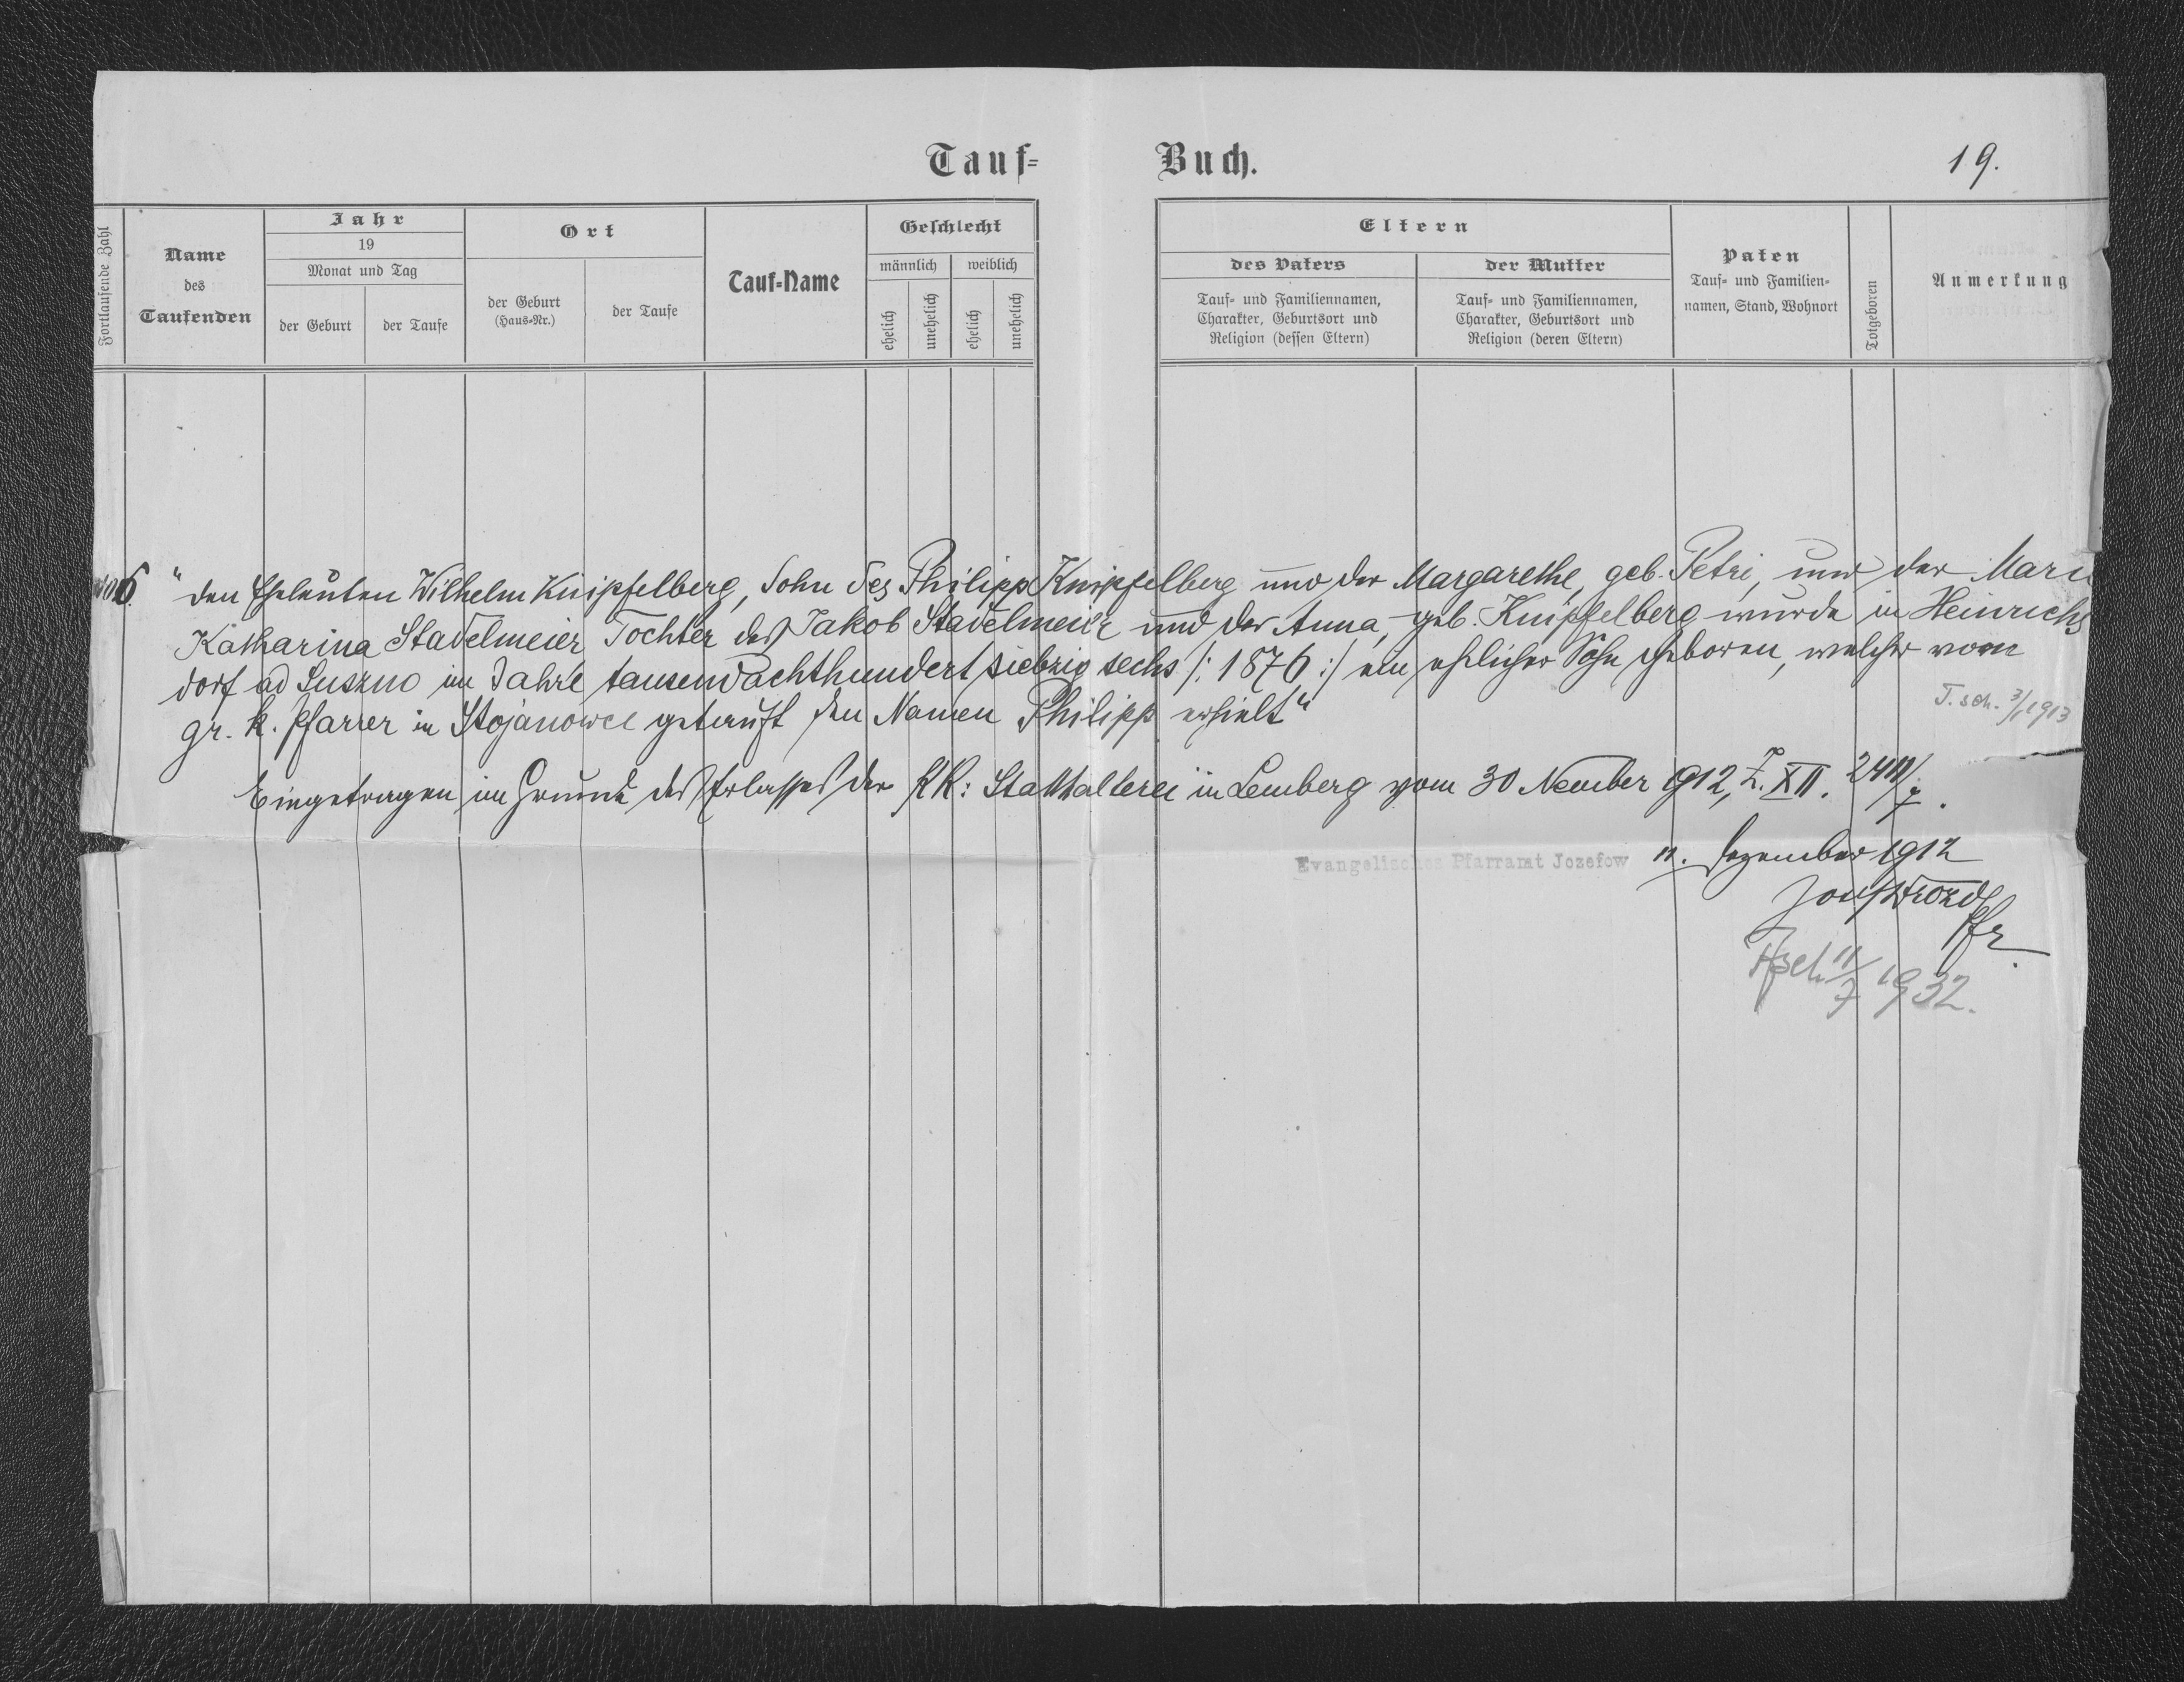 Tauf-
Buch.
19.
Fortlaufende Zahl
Name
des
Taufenden
Jahr
19
Monat und Tag
der Geburt
der Taufe
Ort
der Geburt
(Haus-Nr.)
der Taufe
Tauf-Name
Geschlecht
männlich
weiblich
ehelich
unehelich
ehelich
unehelich
Eltern
des Vaters
Tauf- und Familiennamen,
Charakter, Geburtsort und
Religion (dessen Eltern)
der Mutter
Tauf- und Familiennamen,
Charakter, Geburtsort und
Religion (deren Eltern)
Paten
Tauf- und Familien-
namen, Stand, Wohnort
Totgeboren
Anmerkung
"Den Eheleuten Wilhelm Knipfelberg, Sohn des Philipp Knipfelberg und der Margarethe, geb. Petri, und der Mari
Katharina Stadelmeier, Tochter des Jakob Stadelmeier und der Anna, geb. Knipffelberg wurde in Heinrichs
dorf ad Suszno im Jahre tausendachthundert siebzig sechs /: 1876 :/ ein ehelicher Sohn geboren, welcher vom
gr. k. Pfarrer in Stojanowce getauft den Namen Philipp erhielt"
T. sch. 3/1 1913
Eingetragen im Grunde des Erlasses der KK: Statthalterei in Lemberg vom 30 November 1912, Z. XII.
Evangelisches Pfarramt Jozefow
11. Dezember 1912
Pfr
11/7 1932.